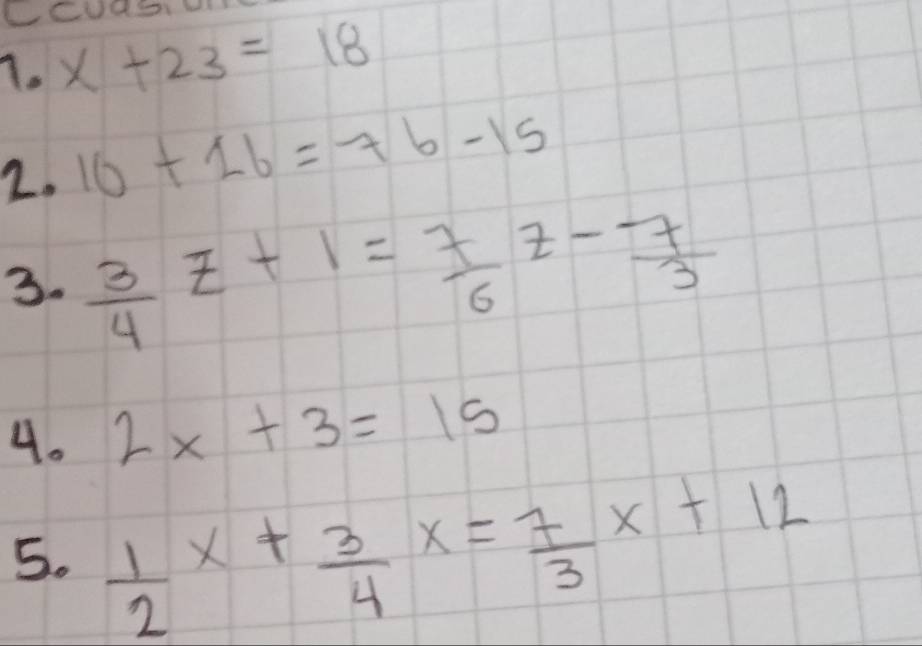 1. x + 23 = 18
2. 10 + 2b = 7b - 15
3. 3/4 z + 1 = 7/6 z - 7/3
4. 2x + 3 = 15
5. 1/2 x + 3/4 x = 7/3 x + 12